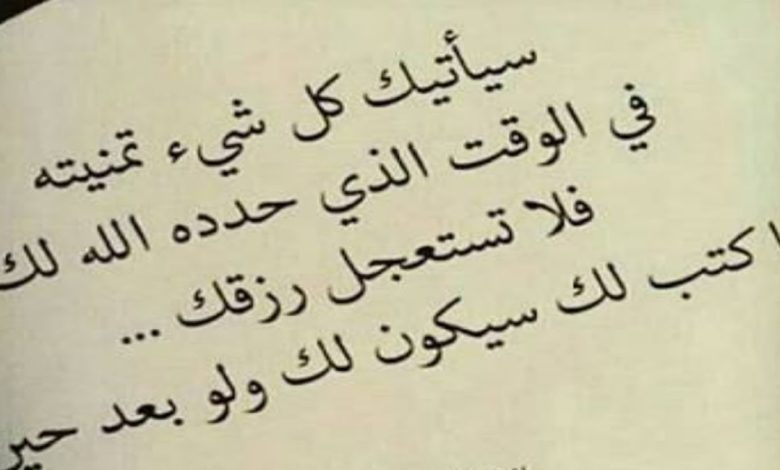 سيأتيك كل شيء تمنيته
في الوقت الذي حدده الله لك
فلا تستعجل رزقك ...
كتب لك سيكون لك ولو بعد